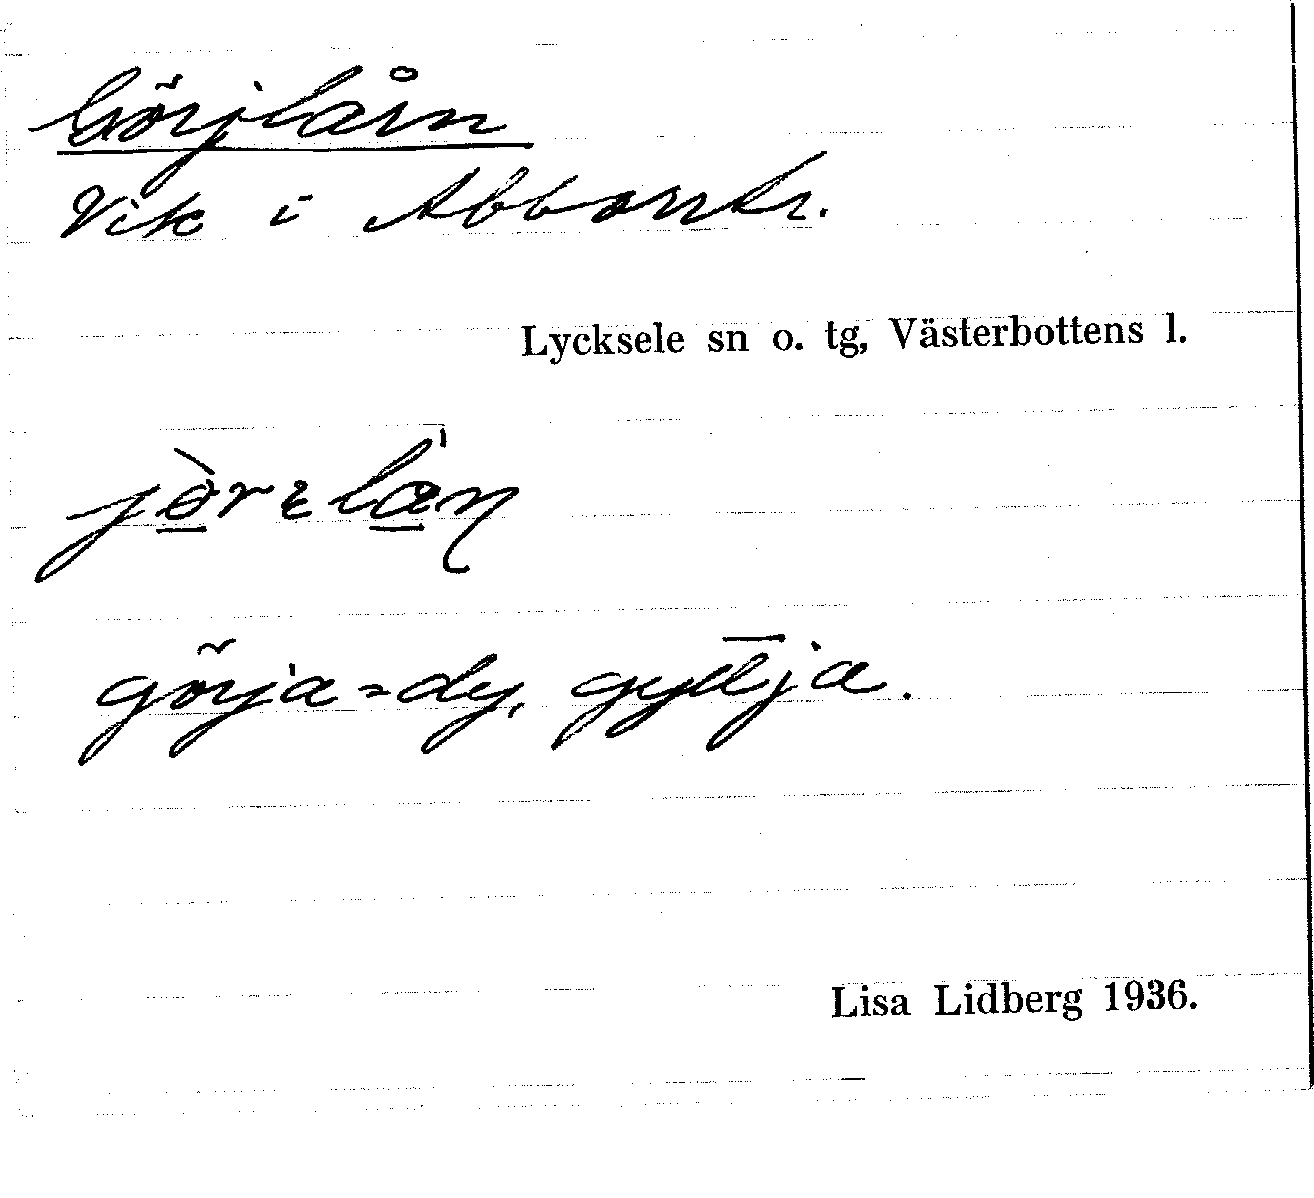 Görjlårn
Vik i Abborrtr.
Lycksele sn o. tg, Västerbottens l.
görja = dy, gyttja.
Lisa Lidberg 1936.